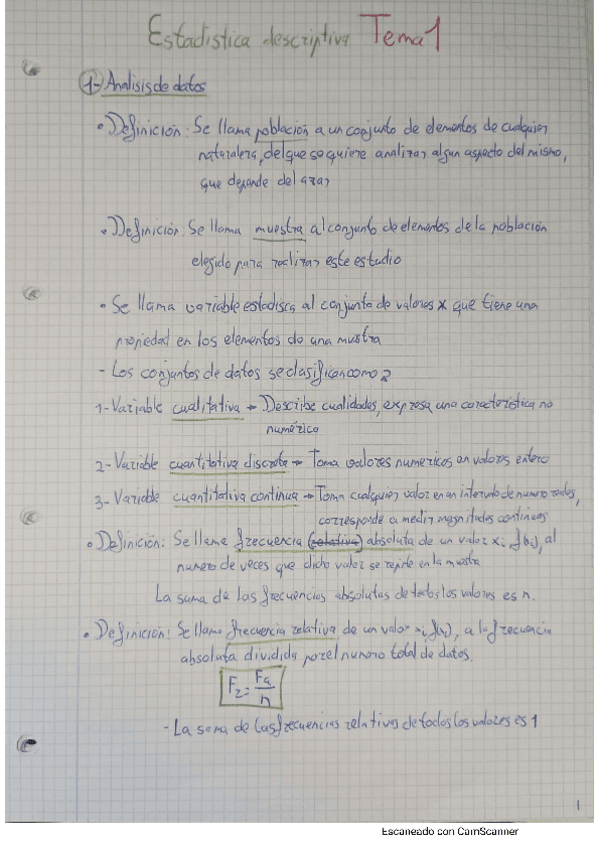 Estadistica descriptiva Tema 1
1- Analisis de datos
• Definición: Se llama población a un conjunto de elementos de cualquier
naturaleza, del que se quiere analizar algun aspecto del mismo,
que depende del azar
• Definición: Se llama muestra al conjunto de elementos de la población
elegido para realizar este estudio
• Se llama variable estadisca al conjunto de valores x que tiene una
propiedad en los elementos de una mustra
- Los conjuntos de datos se clasifican como 2
1- Variable cualitativa → Describe cualidades, expresa una caracteristica no
numérica
2- Variable cuantitativa discreta → Toma valores numericos en valores entero
3- Variable cuantitativa continua → Toma cualquier valor en un intervalo de numero reales,
corresponde a medir magnitudes continuas
• Definición: Se llama frecuencia (relativa) absoluta de un valor xi, f(xi), al
numero de veces que dicho valor se repite en la mustra
La suma de las frecuencias absolutas de todos los valores es n.
• Definición: Se llama frecuencia relativa de un valor xi, f(xi), a la frecuencia
absoluta dividida por el numero total de datos.
Fr = Fa/n
- La suma de las frecuencias relativas de todos los valores es 1
1
Escaneado con CamScanner